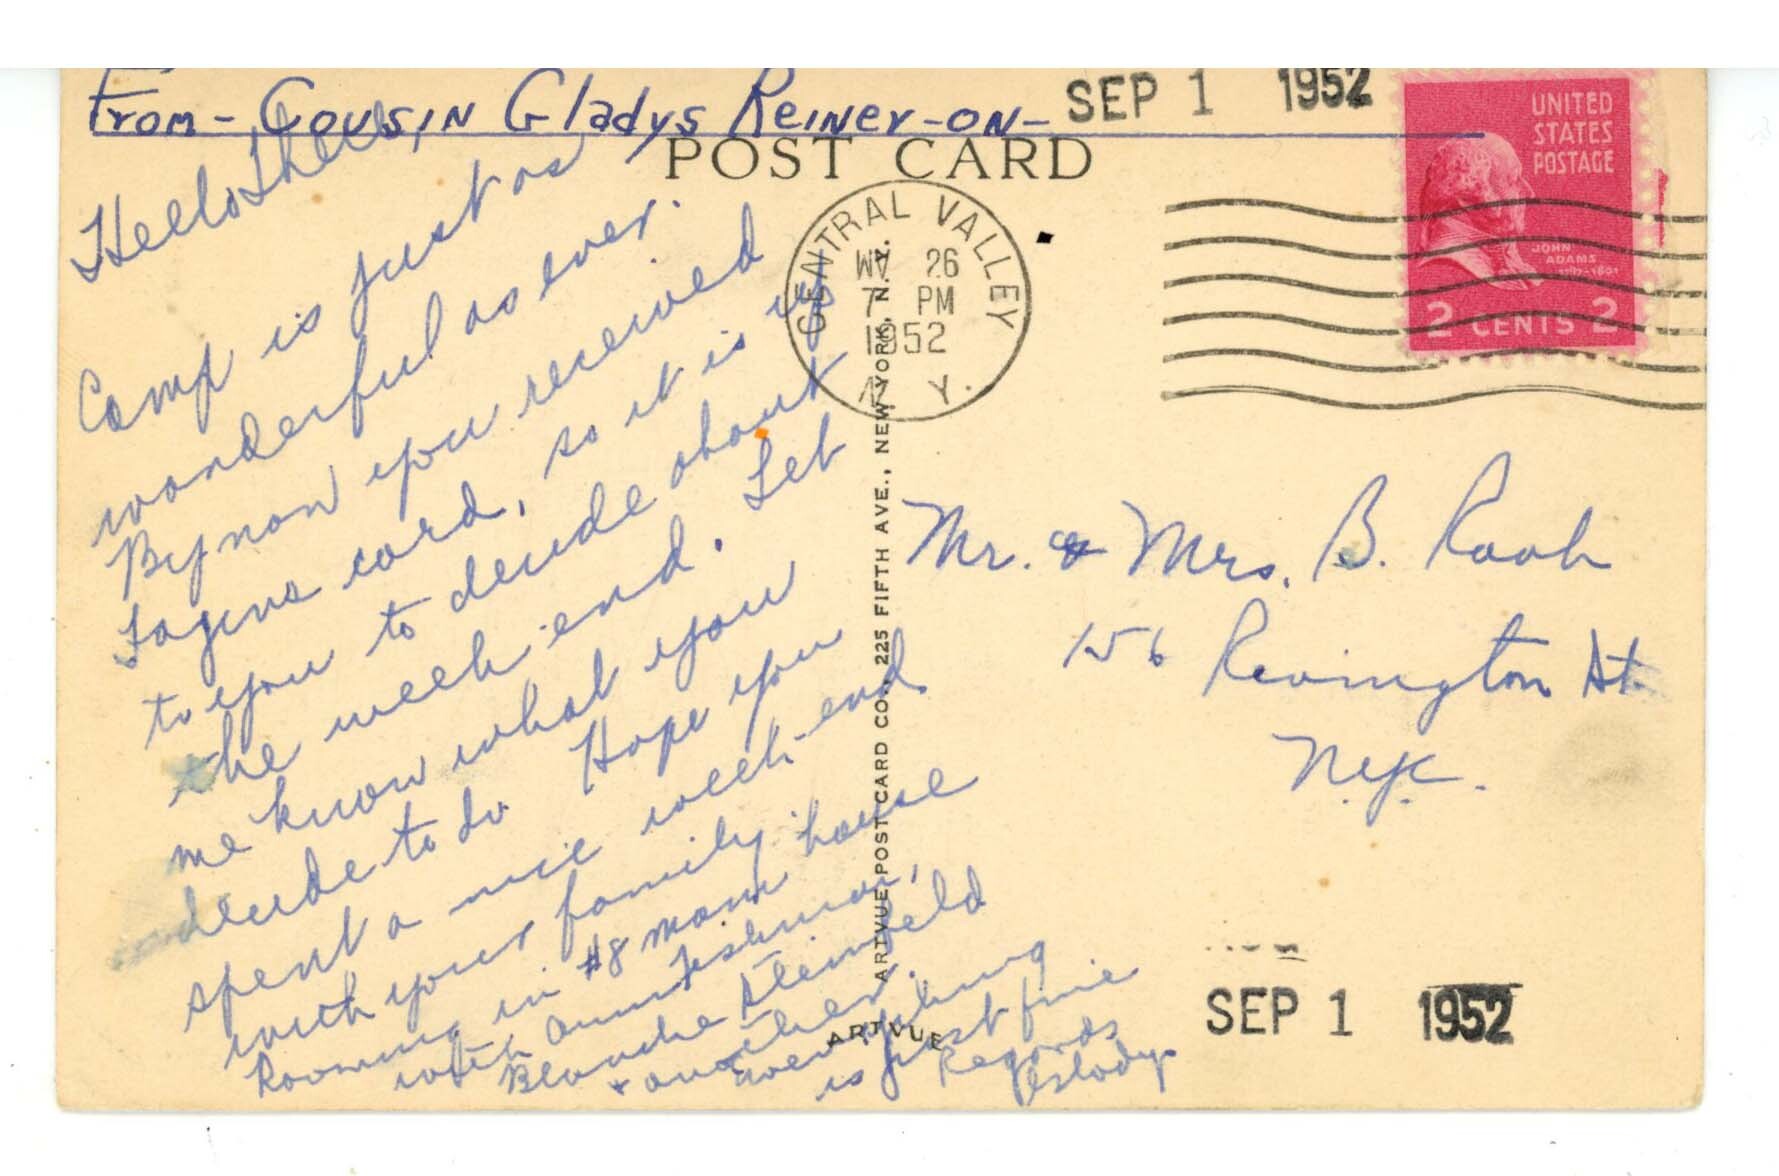 From - Cousin Gladys Reiner - on - SEP 1 1952
POST CARD
UNITED
STATES
POSTAGE
JOHN
ADAMS
1797-1801
2 CENTS 2
CENTRAL VALLEY
N. Y.
26
7 PM
1952
Hello
Camp is just as
wonderful as ever.
By now you received
card, so it is up
to you to decide about
the week-end. Let
me know what you
decide to do. Hope you
spent a nice week-end
with your family
Rooming in #8 house
with Ann
Blanche Steinfeld
+ another.
is just fine
Regards
Gladys
Mr. & Mrs. B. Raab
156 Rivington St.
N.Y.C.
ARTVUE POST CARD CO., 225 FIFTH AVE., NEW YORK, N.Y.
ARTVUE
SEP 1 1952